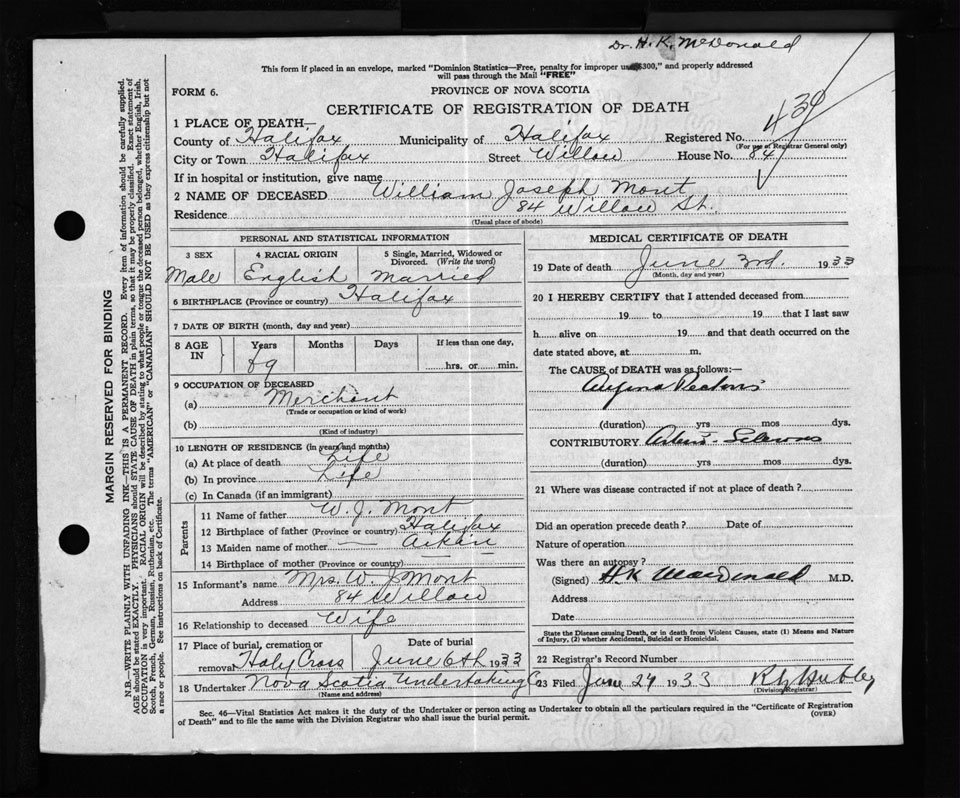 Dr. H. K. McDonald
This form if placed in an envelope, marked "Dominion Statistics—Free, penalty for improper use $300," and properly addressed
will pass through the Mail "FREE"
FORM 6.
PROVINCE OF NOVA SCOTIA
CERTIFICATE OF REGISTRATION OF DEATH
1 PLACE OF DEATH—
County of Halifax Municipality of Halifax Registered No. 439
(For use of Registrar General only)
City or Town Halifax Street Willow House No. 84
If in hospital or institution, give name
2 NAME OF DECEASED William Joseph Mont
Residence 84 Willow St.
(Usual place of abode)
PERSONAL AND STATISTICAL INFORMATION
3 SEX 4 RACIAL ORIGIN 5 Single, Married, Widowed or Divorced. (Write the word)
Male English Married
6 BIRTHPLACE (Province or county) Halifax
7 DATE OF BIRTH (month, day and year)
8 AGE IN Years Months Days If less than one day,
69 hrs. or min.
9 OCCUPATION OF DECEASED
(a) Merchant
(Trade or occupation or kind of work)
(b)
(Kind of industry)
10 LENGTH OF RESIDENCE (in years and months)
(a) At place of death Life
(b) In province Life
(c) In Canada (if an immigrant)
Parents
11 Name of father W. J. Mont
12 Birthplace of father (Province or country) Halifax
13 Maiden name of mother — Aikan
14 Birthplace of mother (Province or country)
15 Informant's name Mrs. W. J. Mont
Address 84 Willow
16 Relationship to deceased Wife
17 Place of burial, cremation or removal Holy Cross Date of burial June 6th 1933
18 Undertaker Nova Scotia Undertaking Co
(Name and address)
MEDICAL CERTIFICATE OF DEATH
19 Date of death June 3rd. 1933
(Month, day and year)
20 I HEREBY CERTIFY that I attended deceased from
19 to 19 that I last saw
h alive on 19 and that death occurred on the
date stated above, at m.
The CAUSE of DEATH was as follows:—
Angina Pectoris
(duration) yrs mos dys.
CONTRIBUTORY Arterio-Sclerosis
(duration) yrs mos dys.
21 Where was disease contracted if not at place of death?
Did an operation precede death? Date of
Nature of operation
Was there an autopsy?
(Signed) H K MacDonald M.D.
Address
Date
State the Disease causing Death, or in death from Violent Causes, state (1) Means and Nature
of Injury, (2) whether Accidental, Suicidal or Homicidal.
22 Registrar's Record Number
23 Filed June 29 1933
(Division Registrar)
Sec. 46—Vital Statistics Act makes it the duty of the Undertaker or person acting as Undertaker to obtain all the particulars required in the "Certificate of Registration
of Death" and to file the same with the Division Registrar who shall issue the burial permit.
(OVER)
MARGIN RESERVED FOR BINDING
N.B.—WRITE PLAINLY WITH UNFADING INK—THIS IS A PERMANENT RECORD. Every item of information should be carefully supplied.
AGE should be stated EXACTLY. PHYSICIANS should STATE CAUSE OF DEATH in plain terms, so that it may be properly classified. Exact statement of
OCCUPATION is very important. RACIAL ORIGIN will be described by stating to what people or tongue the deceased person belonged, whether English, Irish,
Scotch, French, German, Russian, Ruthenian, etc. The terms "AMERICAN" or "CANADIAN" SHOULD NOT BE USED as they express citizenship but not
a race or people. See instructions on back of Certificate.